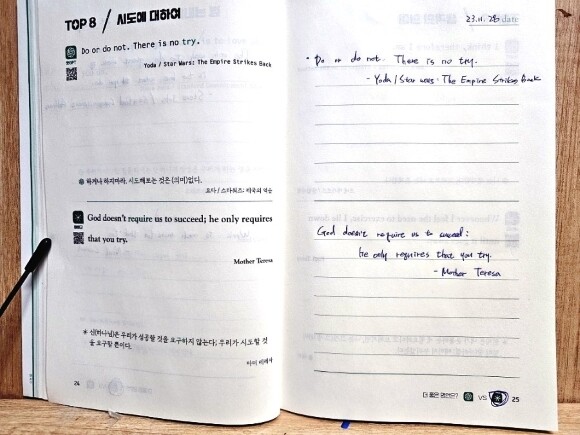 TOP 8 / 시도에 대하여
Do or do not. There is no try.
Yoda / Star Wars: The Empire Strikes Back
하거나 하지마라. 시도해보는 것은 (의미)없다.
요다 / 스타워즈: 제국의 역습
God doesn't require us to succeed; he only requires
that you try.
Mother Teresa
* 신(하나님)은 우리가 성공할 것을 요구하지 않는다; 우리가 시도할 것
을 요구할 뿐이다.
마더 테레사
24
23.11.28 date
· Do or do not. There is no try.
- Yoda / Star wars: The Empire Strikes Back
God doesn't require us to succeed:
he only requires that you try.
- Mother Teresa
더 좋은 명언은? VS 25